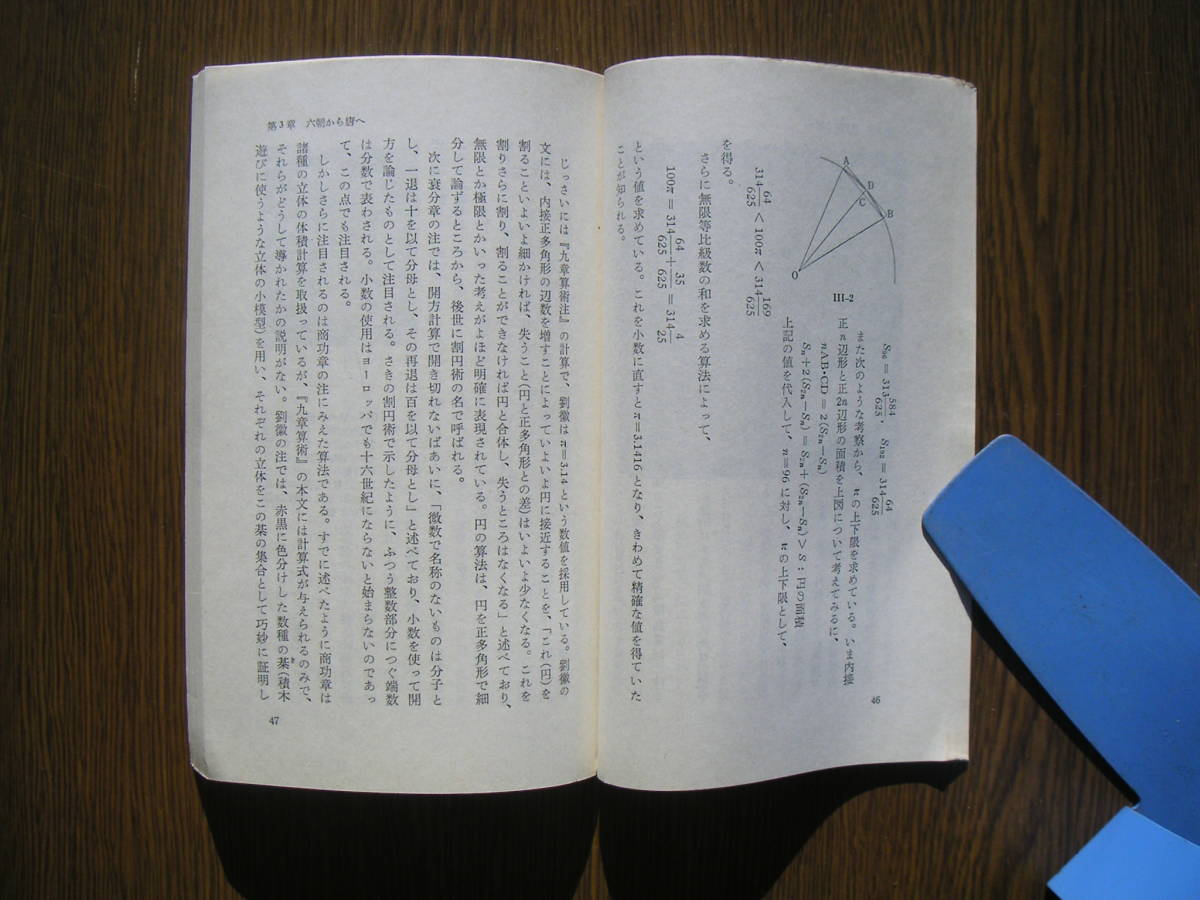 S₉₆ = 313 584/625, S₁₉₂ = 314 64/625
また次のような考察から、πの上下限を求めている。いま内接
正n辺形と正2n辺形の面積を上図について考えてみるに、
nAB・CD＝2(S₂ₙ−Sₙ)
Sₙ＋2(S₂ₙ−Sₙ)＝S₂ₙ＋(S₂ₙ−Sₙ)＞S：円の面積
上記の値を代入して、n＝96に対し、πの上下限として、
A
D
C
B
O
III-2
314 64/625 < 100π < 314 169/625
を得る。
さらに無限等比級数の和を求める算法によって、
100π = 314 64/625 + 35/625 = 314 4/25
という値を求めている。これを小数に直すとπ＝3.1416となり、きわめて精確な値を得ていた
ことが知られる。
46
第3章 六朝から唐へ
じっさいには『九章算術注』の計算で、劉徽はπ＝3.14という数値を採用している。劉徽の
文には、内接正多角形の辺数を増すことによっていよいよ円に接近することを、「これ(円)を
割ることいよいよ細かければ、失うこと(円と正多角形との差)はいよいよ少なくなる。これを
割りさらに割り、割ることができなければ円と合体し、失うところはなくなる」と述べており、
無限とか極限とかいった考えがよほど明確に表現されている。円の算法は、円を正多角形で細
分して論ずるところから、後世に割円術の名で呼ばれる。
次に衰分章の注では、開方計算で開き切れないばあいに、「微数で名称のないものは分子と
し、一退は十を以て分母とし、その再退は百を以て分母とし」と述べており、小数を使って開
方を論じたものとして注目される。さきの割円術で示したように、ふつう整数部分につぐ端数
は分数で表わされる。小数の使用はヨーロッパでも十六世紀にならないと始まらないのであっ
て、この点でも注目される。
しかしさらに注目されるのは商功章の注にみえた算法である。すでに述べたように商功章は
諸種の立体の体積計算を取扱っているが、『九章算術』の本文には計算式が与えられるのみで、
それらがどうして導かれたかの説明がない。劉徽の注では、赤黒に色分けした数種の棊(積木
遊びに使うような立体の小模型)を用い、それぞれの立体をこの棊の集合として巧妙に証明し
47